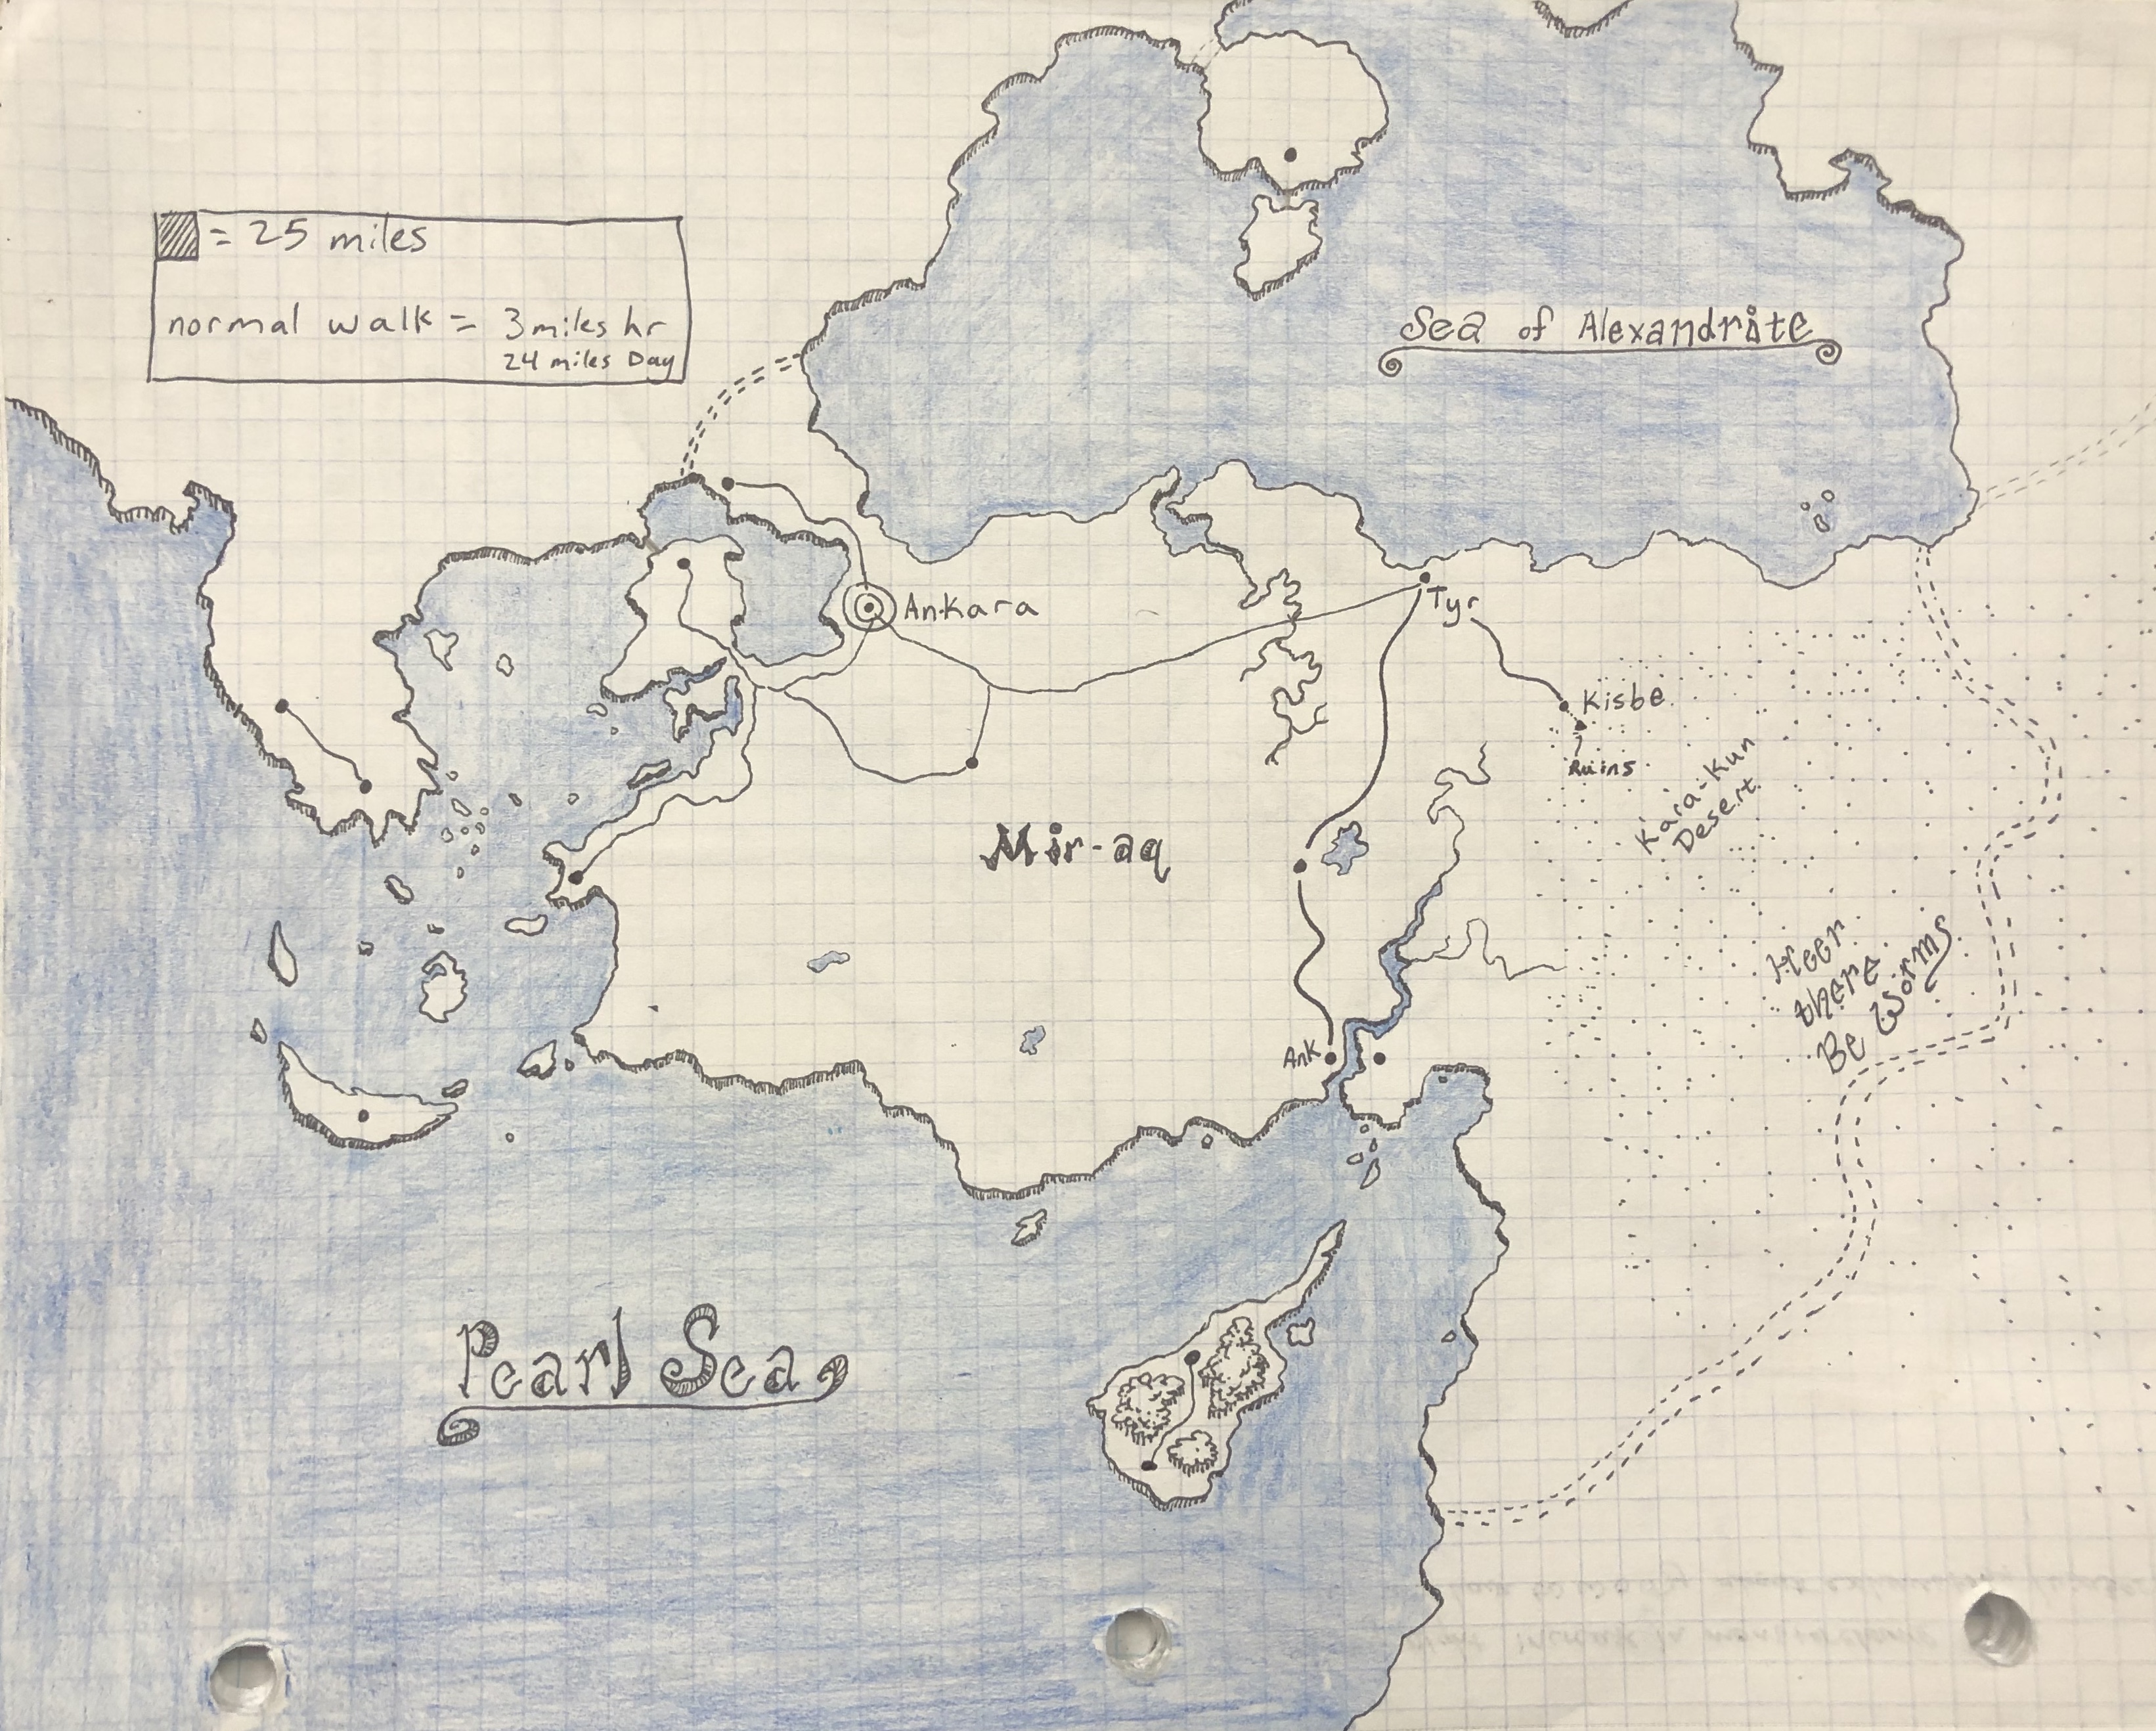 = 25 miles
normal walk = 3 miles hr
24 miles Day
Sea of Alexandrite
Ankara
Tyr
Kisbe
Ruins
Kara-Kun
Desert
Mir-aq
Heer
there
Be Worms
Ank
Pearl Sea